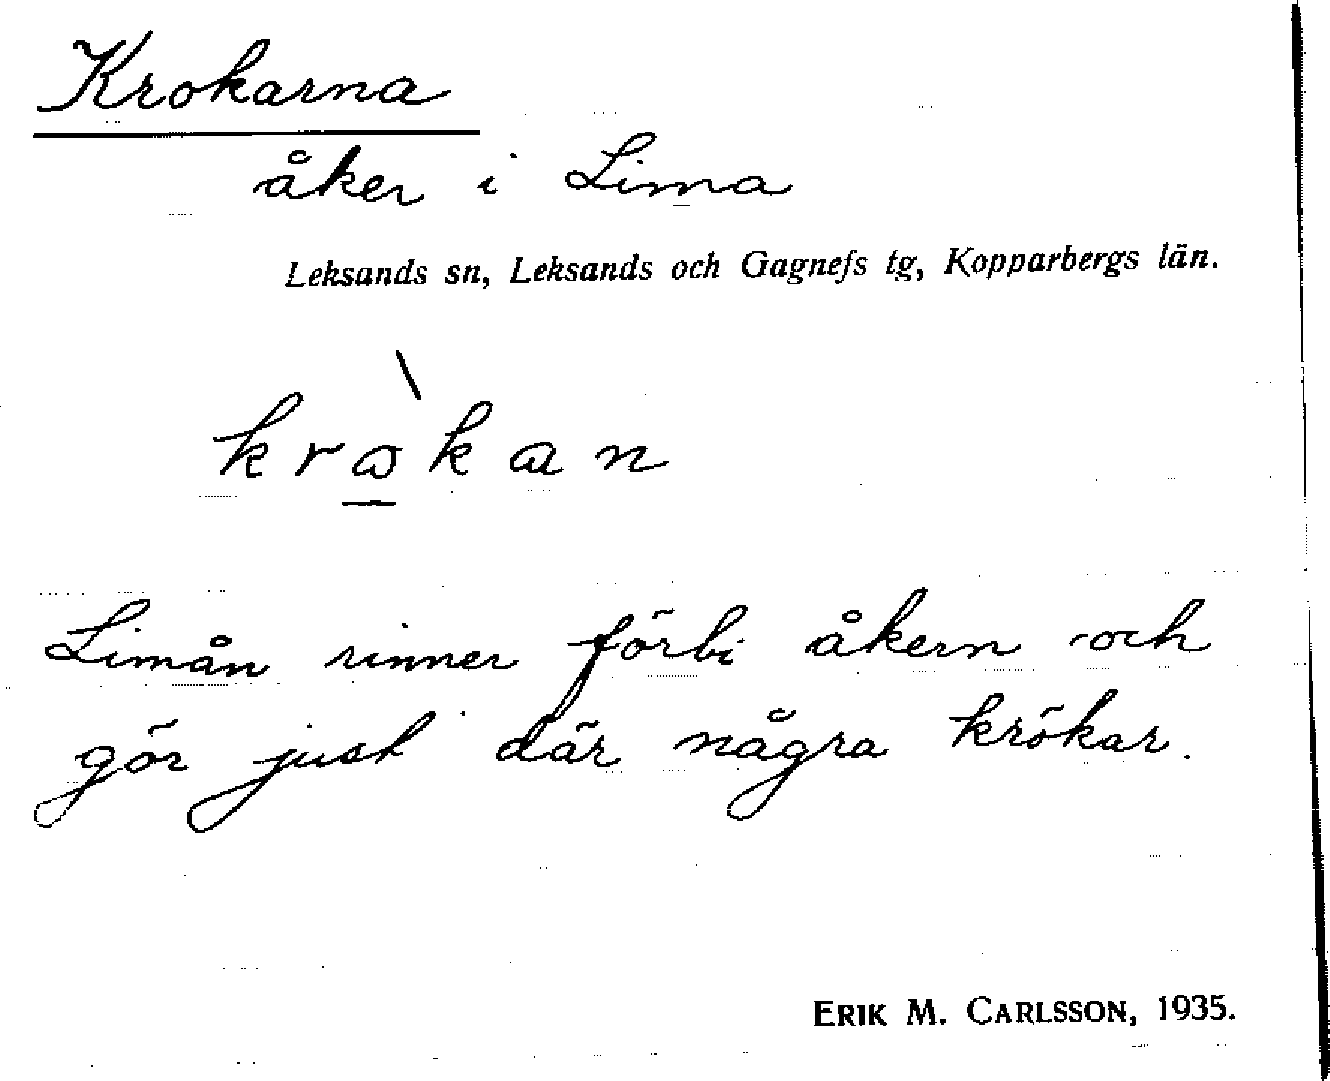 Krokarna
åker i Lima
Leksands sn, Leksands och Gagnefs tg, Kopparbergs län.
Limån rinner förbi åkern och
gör just där några krökar.
ERIK M. CARLSSON, 1935.